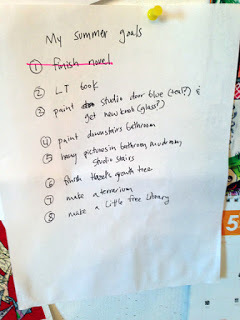 My summer goals
① finish novel
② LT book
③ paint studio door blue (teal?) &
get new knob (glass?)
④ paint downstairs bathroom
⑤ hang pictures in bathroom, mudroom,
studio stairs
⑥ finish growth tree
⑦ make a terrarium
⑧ make a Little Free Library
5